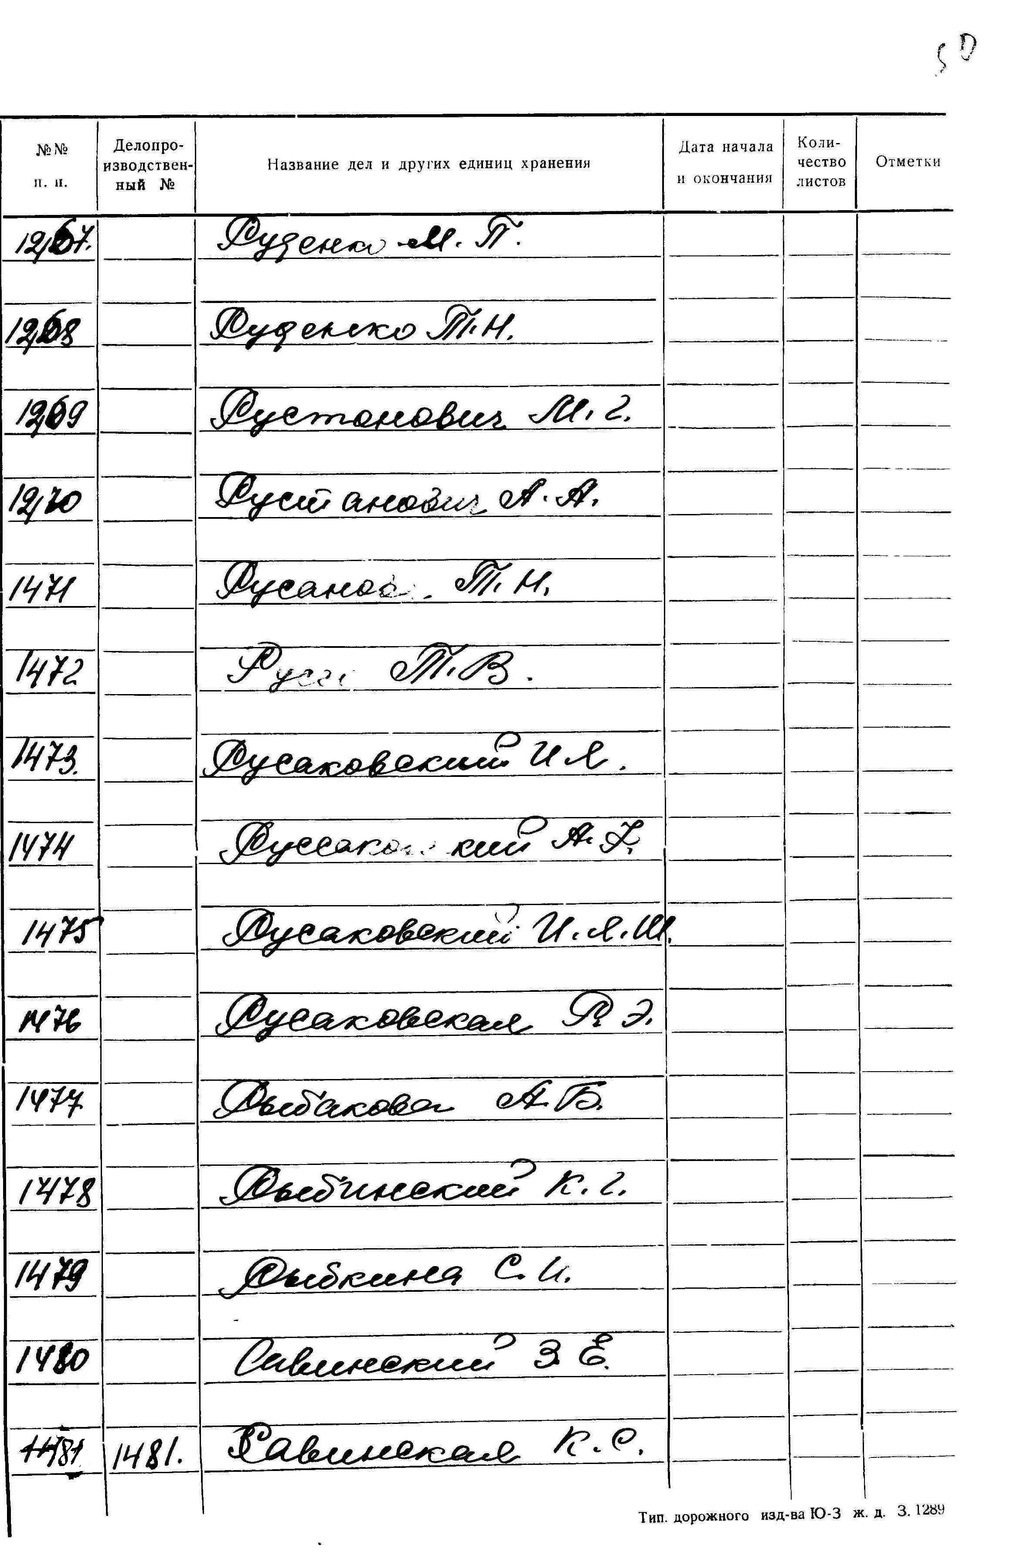 50
№№ п. п. Делопроизводственный № Название дел и других единиц хранения Дата начала и окончания Количество листов Отметки
1267. Руденко М. П.
1268 Руденко Т. Н.
1269 Рустанович М. Г.
1270 Рустанович А. А.
1471 Русанов Т. Н.
1472 Т. В.
1473. Русаковский И Я.
1474 А.
1475 Русаковский И. Я. Ш.
1476 Русаковская Р. Э.
1477 Рыбакова А. Б.
1478 Рыбинский К. Г.
1479 Рыбкина С. И.
1480 Савинский З. Е.
1481 1481. Савинская К. С.
Тип. дорожного изд-ва Ю-З ж. д. З. 1289